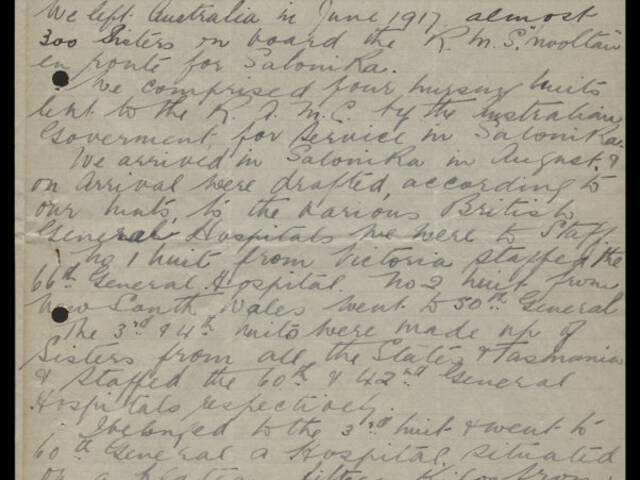 We left Australia in June 1917, almost
300 Sisters on board the R.M.S. "Mooltan"
en route for Salonika.
We comprised four nursing Units
lent to the R.A.M.C. by the Australian
Goverment, for service in Salonika.
We arrived in Salonika in August, &
on arrival were drafted, according to
our Units, to the various British
General Hospitals we were to Staff.
No 1 Unit from Victoria staffed the
66th General Hospital. No 2 Unit from
New South Wales went to 50th General
The 3rd & 4th Units were made up of
Sisters from all the States & Tasmania
& staffed the 60th & 42nd General
Hospitals respectively.
I belonged to the 3rd Unit & went to
60th General a Hospital situated
on a fifteen Kilos from